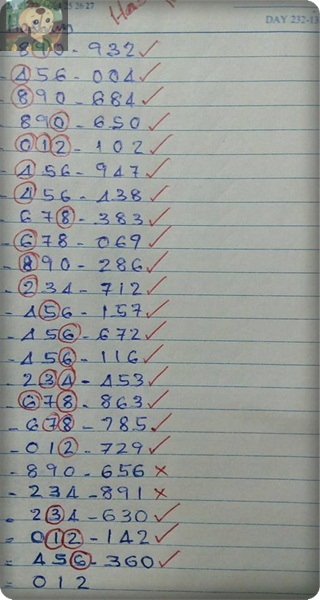 25 26 27
DAY 232-13
890-932✓
456-004✓
- 890-684✓
890-650✓
- 012-102✓
- 456-947✓
- 456-438✓
- 678-383✓
- 678-069✓
- 890-286✓
- 234-712✓
- 456-157✓
- 456-672✓
- 456-116✓
- 234-453✓
- 678-863✓
- 678-785✓
- 012-729✓
- 890-656×
- 234-891×
= 234-630✓
= 012-142✓
= 456-360✓
= 012